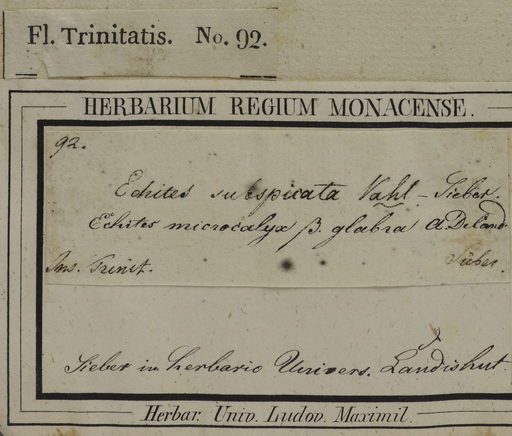 Fl. Trinitatis. No. 92.
HERBARIUM REGIUM MONACENSE.
92.
Echites subspicata Vahl – Sieber.
Echites microcalyx β. glabra A. DeCand.
Ins. Trinit. Sieber.
Sieber in herbario Univers. Landishut
Herbar. Univ. Ludov. Maximil.